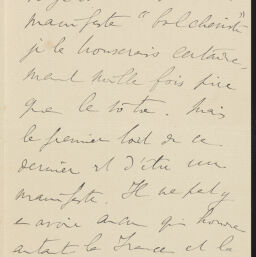 manifeste "bolcheviste"
je le trouverais certaine-
ment mille fois pire
que le vôtre. Mais
le premier tort de ce
dernier est d'être un
manifeste. Il ne peut y
en avoir aucun qui honore
autant la France et la